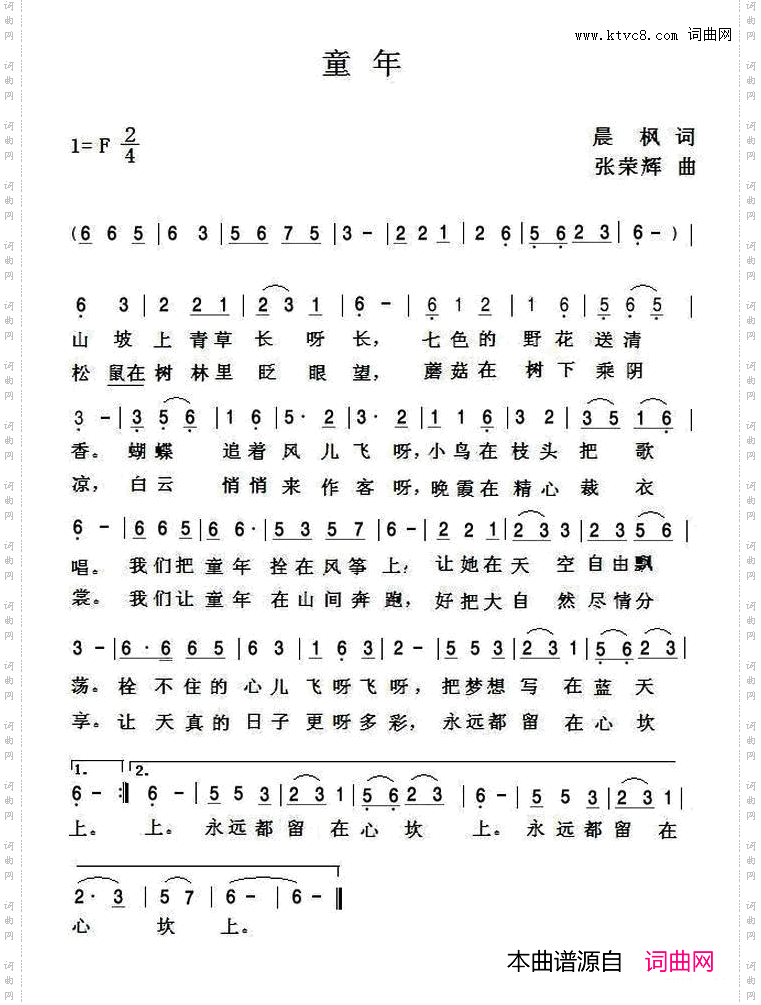 www.ktvc8.com 词曲网
童 年
1= F 2/4
晨 枫 词
张荣辉 曲
( 6 6 5 | 6 3 | 5 6 7 5 | 3 - | 2 2 1 | 2 6 | 5 6 2 3 | 6 - ) |
6 3 | 2 2 1 | 2 3 1 | 6 - | 6 1 2 | 1 6 | 5 6 5 |
山 坡 上 青 草 长 呀 长， 七 色 的 野 花 送 清
松 鼠在 树 林 里 眨 眼 望， 蘑 菇 在 树 下 乘 阴
3 - | 3 5 6 | 1 6 | 5· 2 | 3· 2 | 1 1 6 | 3 2 | 3 5 1 6 |
香。 蝴 蝶 追 着 风 儿 飞 呀， 小 鸟 在 枝 头 把 歌
凉， 白 云 悄 悄 来 作 客 呀， 晚 霞 在 精 心 裁 衣
6 - | 6 6 5 | 6 6· | 5 3 5 7 | 6 - | 2 2 1 | 2 3 3 | 2 3 5 6 |
唱。 我 们 把 童 年 拴 在 风 筝 上， 让 她 在 天 空 自 由 飘
裳。 我 们 让 童 年 在 山 间 奔 跑， 好 把 大 自 然 尽 情 分
3 - | 6· 6 6 5 | 6 3 | 1 6 3 | 2 - | 5 5 3 | 2 3 1 | 5 6 2 3 |
荡。 栓 不 住 的 心 儿 飞 呀 飞 呀， 把 梦 想 写 在 蓝 天
享。 让 天 真 的 日 子 更 呀 多 彩， 永 远 都 留 在 心 坎
1. 2.
6 - :‖ 6 - | 5 5 3 | 2 3 1 | 5 6 2 3 | 6 - | 5 5 3 | 2 3 1 |
上。 上。 永 远 都 留 在 心 坎 上。 永 远 都 留 在
2· 3 | 5 7 | 6 - | 6 - ‖
心 坎 上。
本曲谱源自 词曲网